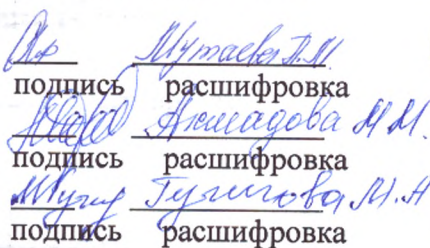 Мутаева П.М.
подпись расшифровка
Ахмадова М М.
подпись расшифровка
Гугигова М.А
подпись расшифровка